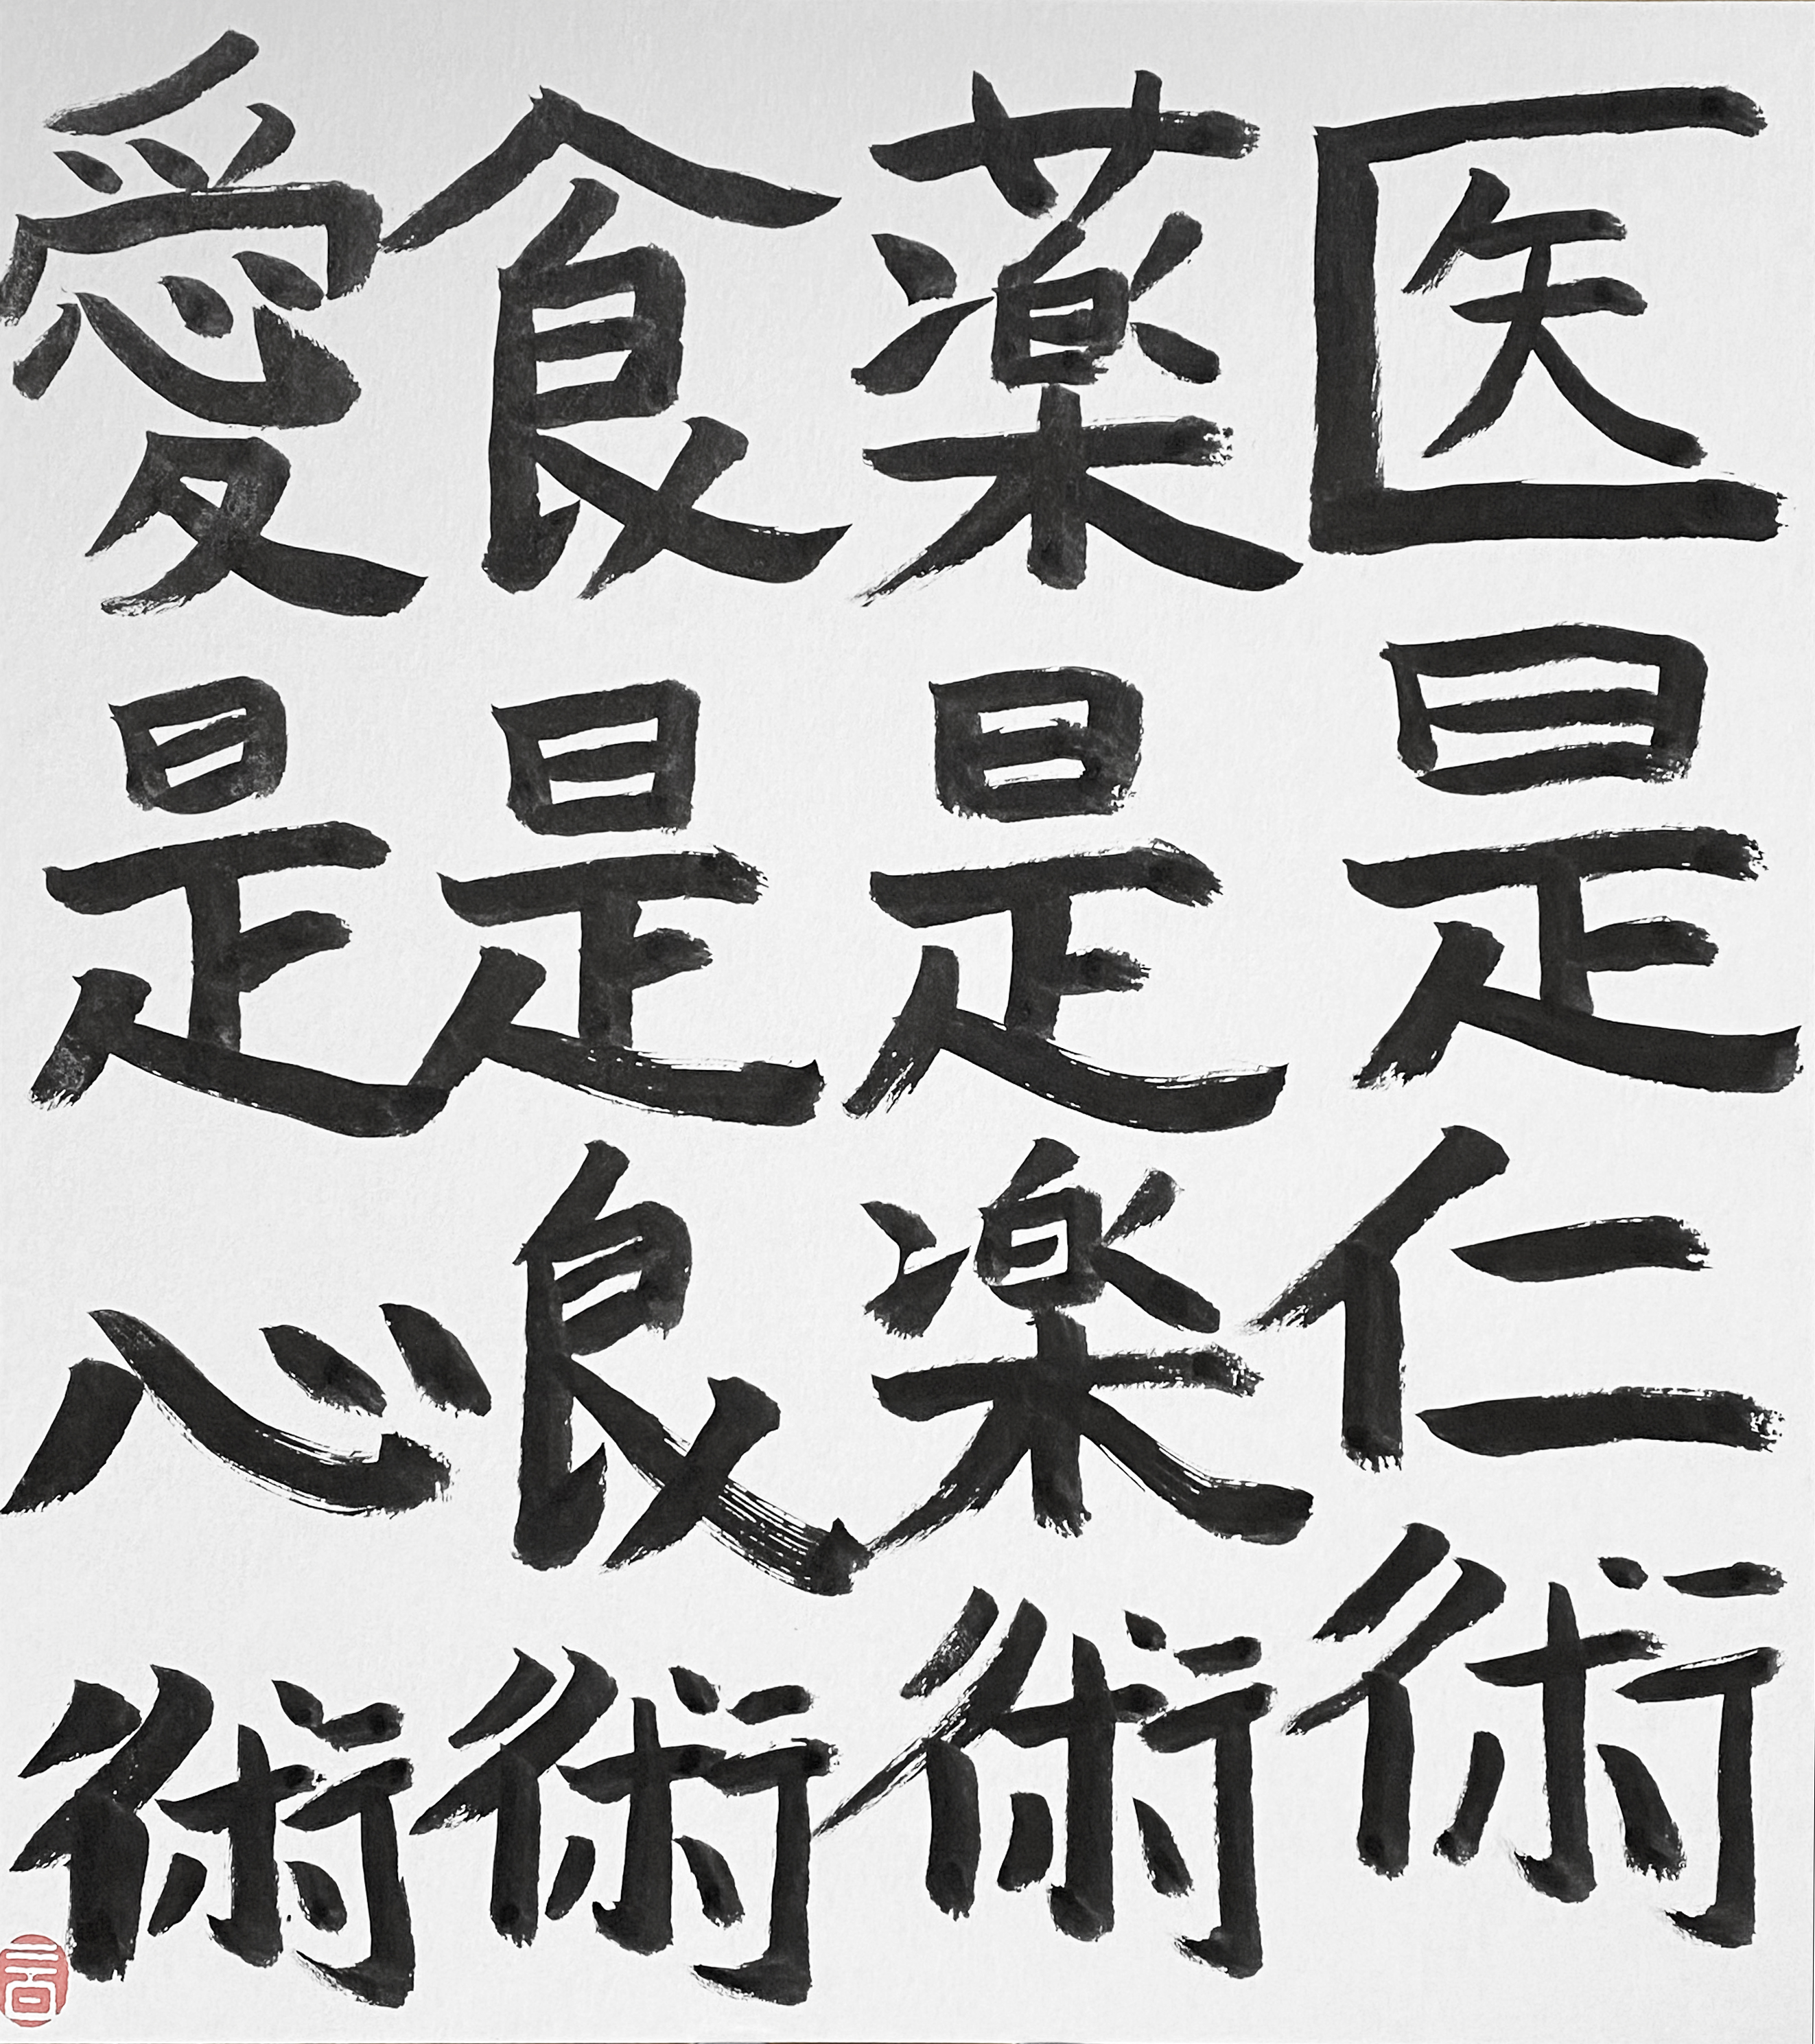 医是仁術
薬是楽術
食是良術
愛是心術
言